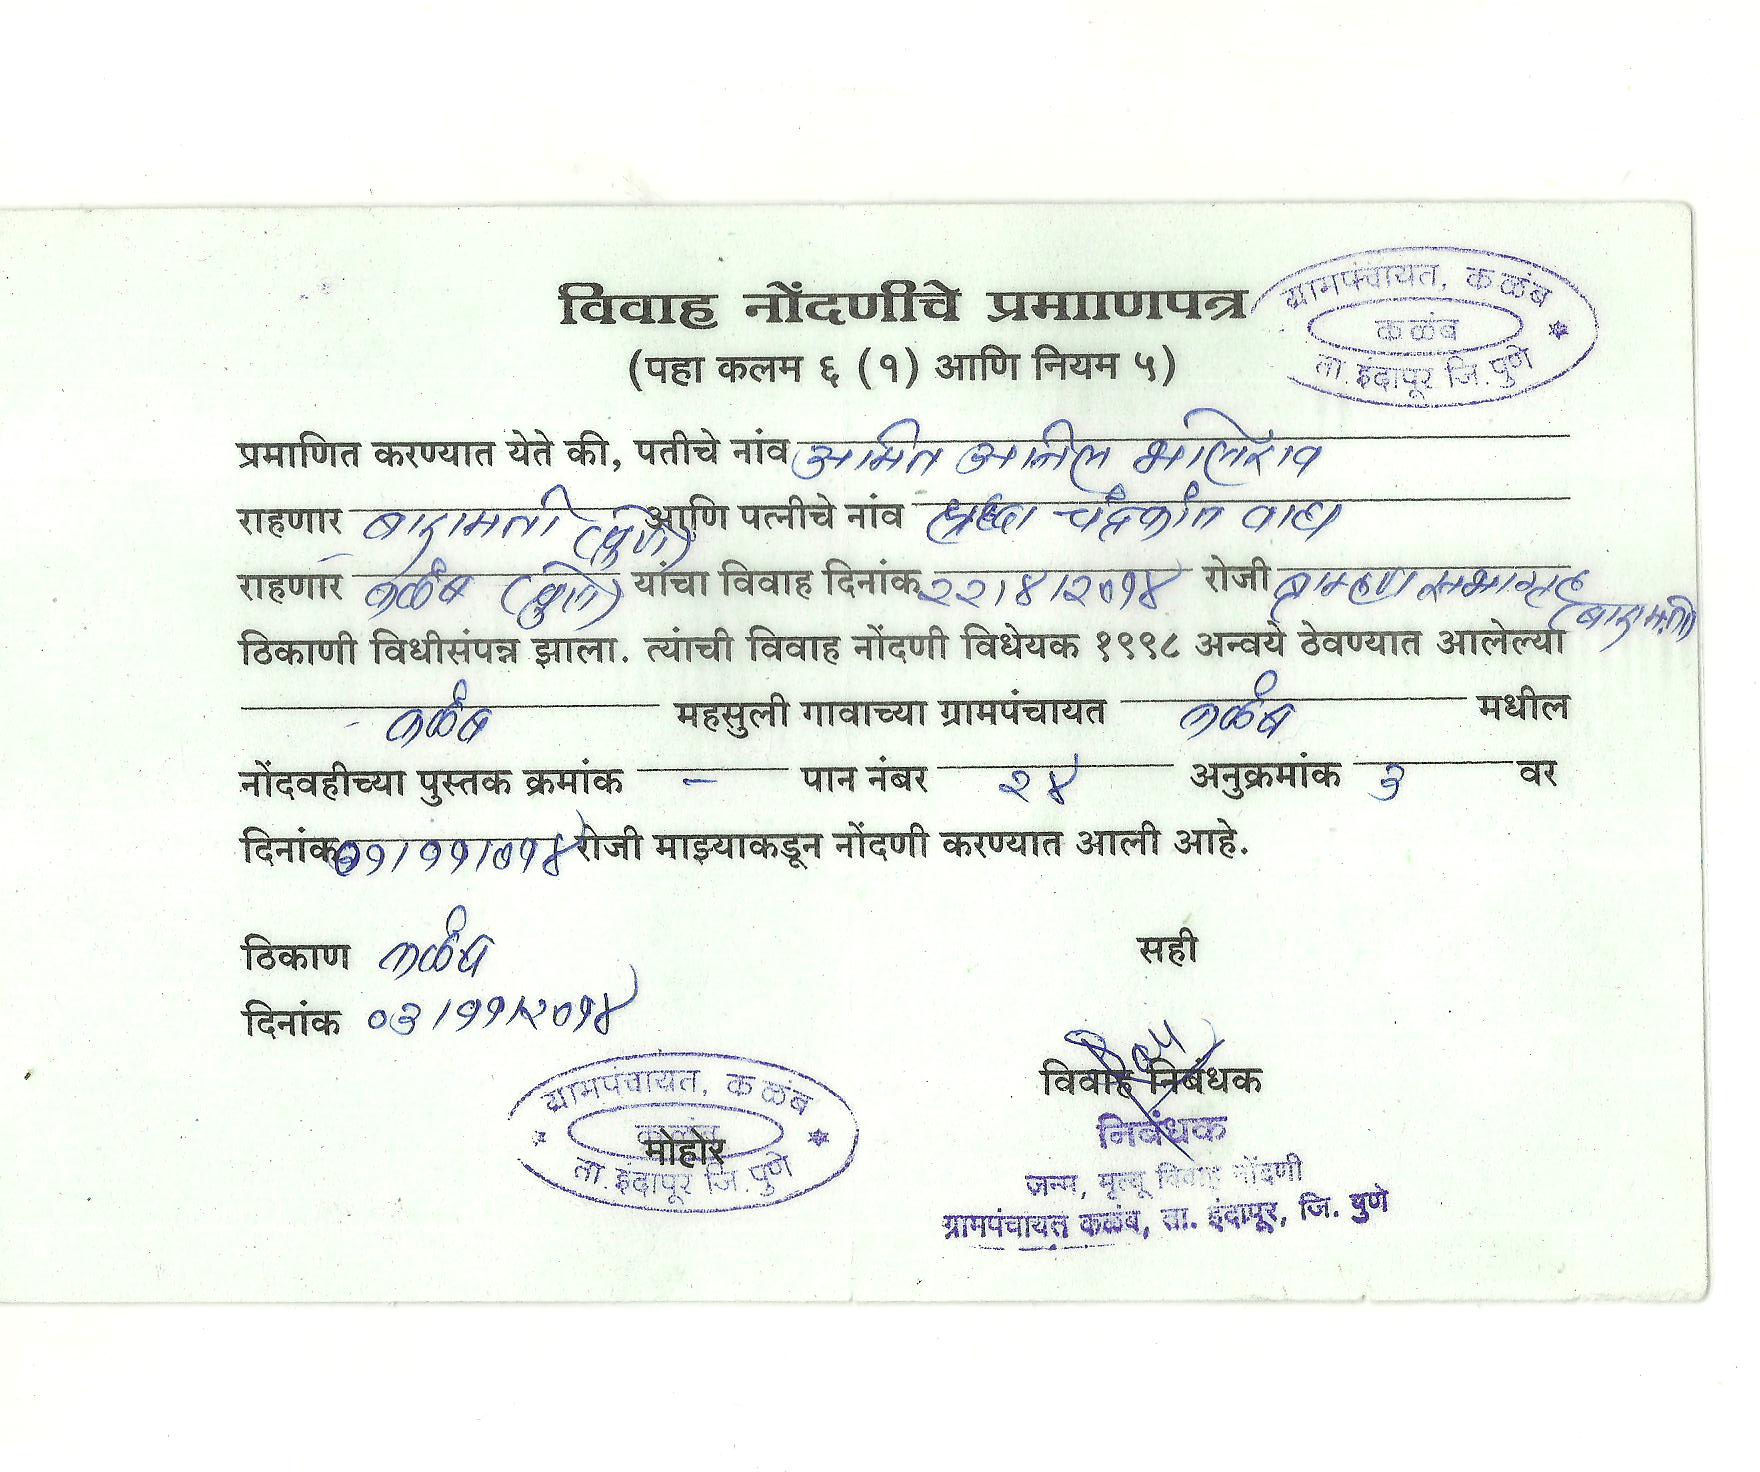 विवाह नोंदणीचे प्रमााणपत्र
(पहा कलम ६ (१) आणि नियम ५)
ग्रामपंचायत, कळंब
कळंब
ता. इंदापूर जि. पुणे
प्रमाणित करण्यात येते की, पतीचे नांव अमित अनिल भालेराव
राहणार बारामती (पुणे) आणि पत्नीचे नांव श्रध्दा चंद्रकांत वाघ
राहणार कळंब (पुणे) यांचा विवाह दिनांक २२/४/२०१४ रोजी ब्राम्हण सभागृह (बारामती)
ठिकाणी विधीसंपन्न झाला. त्यांची विवाह नोंदणी विधेयक १९९८ अन्वये ठेवण्यात आलेल्या
कळंब महसुली गावाच्या ग्रामपंचायत कळंब मधील
नोंदवहीच्या पुस्तक क्रमांक - पान नंबर २४ अनुक्रमांक ३ वर
दिनांक रोजी माझ्याकडून नोंदणी करण्यात आली आहे.
ठिकाण कळंब
सही
दिनांक ०३/११/२०१४
विवाह निबंधक
ग्रामपंचायत, कळंब
कळंब
मोहोर
ता. इंदापूर जि. पुणे
निबंधक
जन्म, मृत्यू विवाह नोंदणी
ग्रामपंचायत कळंब, ता. इंदापूर, जि. पुणे